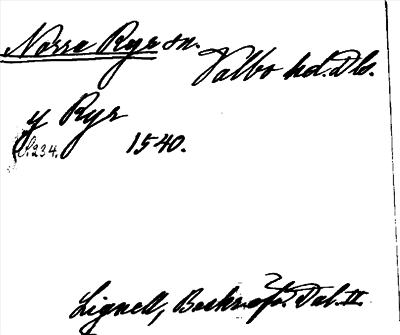 Norra Ryr sn.
Valbo hd. Dls.
y Ryr
1540.
S.234.
Lignell, Beskr. öfv. Dal. II.